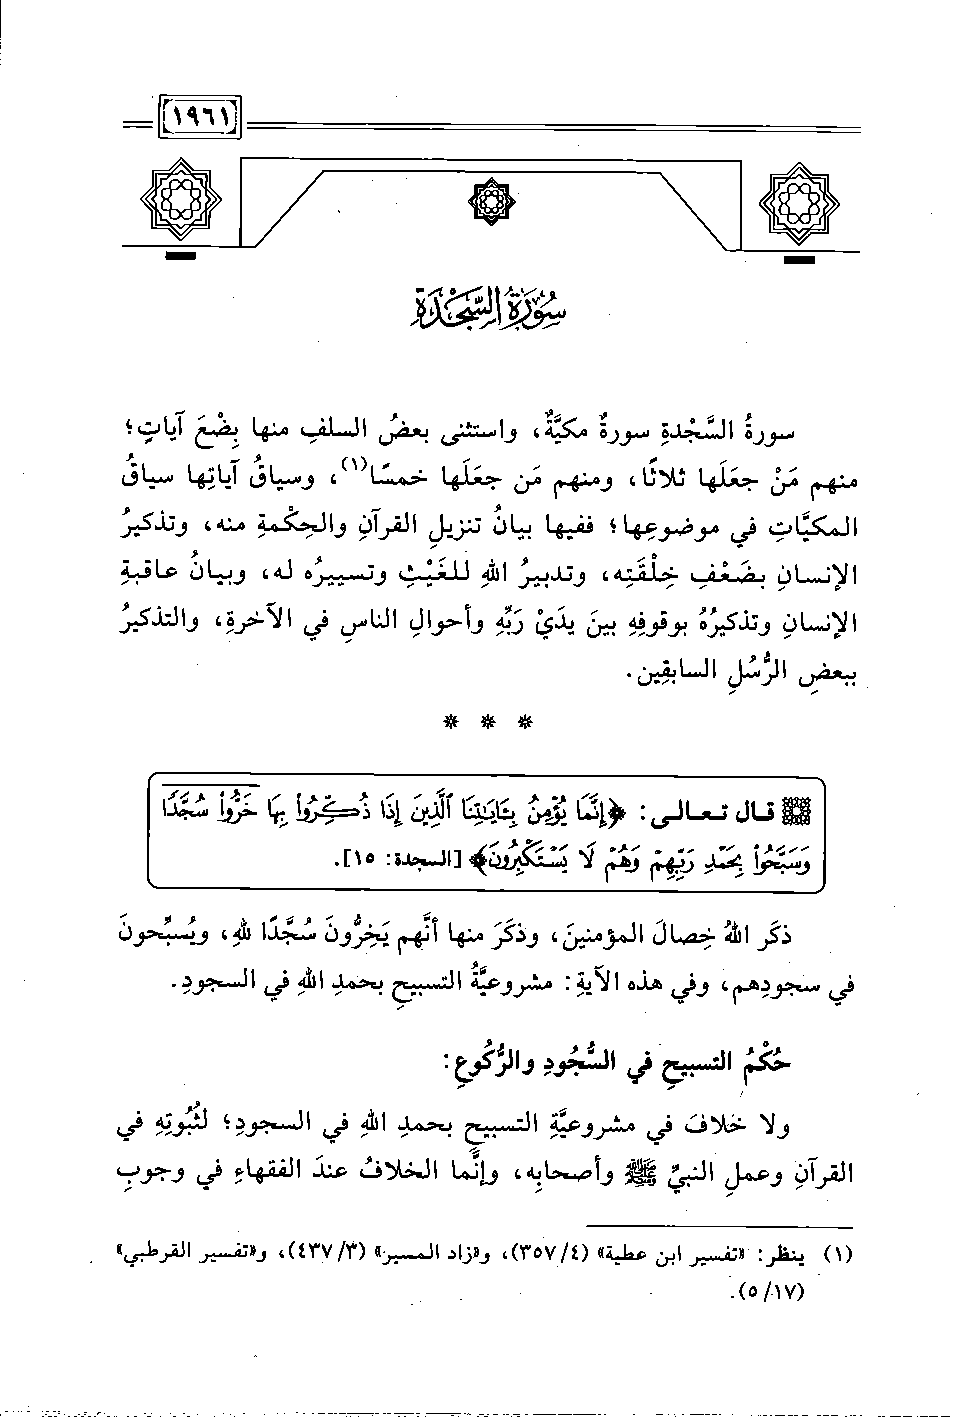 ١٩٦١
سُورَةُ السَّجْدَةِ
سورةُ السَّجْدةِ سورةٌ مكيَّةٌ، واستثنى بعضُ السلفِ منها بِضْعَ آياتٍ؛
منهم مَنْ جعَلَها ثلاثًا، ومنهم مَن جعَلَها خمسًا(١)، وسياقُ آياتِها سياقُ
المكيَّاتِ في موضوعِها؛ ففيها بيانُ تنزيلِ القرآنِ والحِكْمةِ منه، وتذكيرُ
الإنسانِ بضَعْفِ خِلْقَتِه، وتدبيرُ اللهِ للغَيْثِ وتسييرُه له، وبيانُ عاقبةِ
الإنسانِ وتذكيرُهُ بوقوفِهِ بينَ يدَيْ رَبِّهِ وأحوالِ الناسِ في الآخرةِ، والتذكيرُ
ببعضِ الرُّسُلِ السابقِين.
* * *
قال تعالى: ﴿إِنَّمَا يُؤْمِنُ بِـَٔايَـٰتِنَا ٱلَّذِينَ إِذَا ذُكِّرُوا۟ بِهَا خَرُّوا۟ سُجَّدًا
وَسَبَّحُوا۟ بِحَمْدِ رَبِّهِمْ وَهُمْ لَا يَسْتَكْبِرُونَ﴾ [السجدة: ١٥].
ذكَر اللهُ خِصالَ المؤمنينَ، وذكَرَ منها أنَّهم يَخِرُّونَ سُجَّدًا للهِ، ويُسبِّحونَ
في سجودِهم، وفي هذه الآيةِ: مشروعيَّةُ التسبيحِ بحمدِ اللهِ في السجودِ.
حُكْمُ التسبيحِ في السُّجُودِ والرُّكُوعِ:
ولا خلافَ في مشروعيَّةِ التسبيحِ بحمدِ اللهِ في السجودِ؛ لثُبُوتِهِ في
القرآنِ وعملِ النبيِّ ﷺ وأصحابِه، وإنَّما الخلافُ عندَ الفقهاءِ في وجوبِ
(١) ينظر: «تفسير ابن عطية» (٤/٣٥٧)، و«زاد المسير» (٣/٤٣٧)، و«تفسير القرطبي»
(١٧/٥).